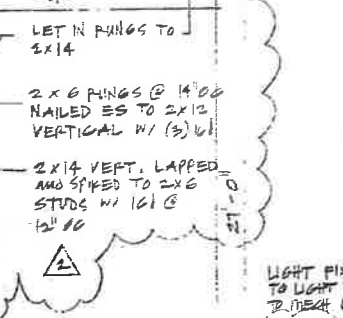 LET IN RUNGS TO
2X14
2 X 6 RUNGS @ 14" OC
NAILED ES TO 2X12
VERTICAL W/ (3) 16d
2X14 VERT. LAPPED
AND SPIKED TO 2X6
STUDS W/ 16d @
12" OC
2
27'-0"
LIGHT
TO LIGHT